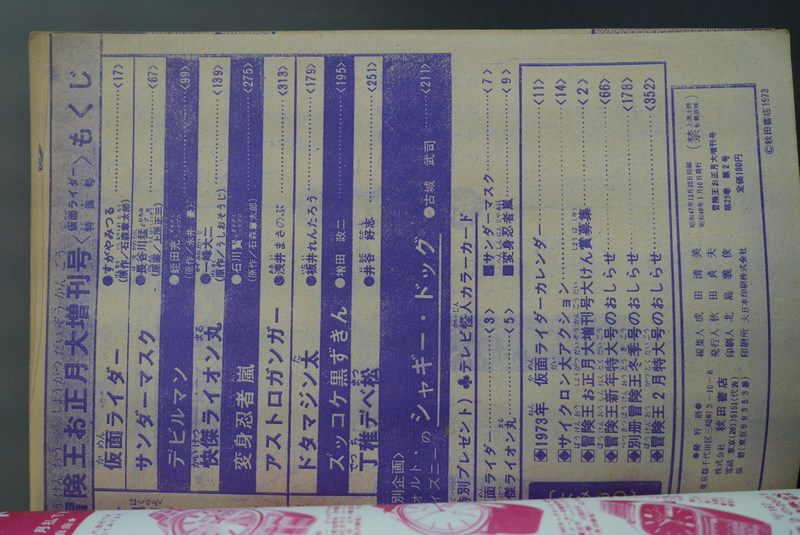 冒険王お正月大増刊号〈仮面ライダー特集号〉もくじ
仮面ライダー ●すがやみつる(原作/石森章太郎)……〈17〉
サンダーマスク ●長谷川………〈67〉
デビルマン ●蛭田充(原作/永井豪)……〈99〉
快傑ライオン丸 ●一峰大二(原作/うしおそうじ)……〈139〉
変身忍者嵐 ●石川賢(原作/石森章太郎)……〈275〉
アストロガンガー ●浅井まさのぶ……〈313〉
ドタマジン太 ●坂井れんたろう……〈179〉
ズッコケ黒ずきん ●増田政二……〈195〉
丁稚デベ松 ●井谷好志……〈251〉
別企画〉
ォルト・
ィズニーの シャギー・ドッグ ●古城武司……〈211〉
特別プレゼント) ♣テレビ怪人カラーカード
面ライダー……〈3〉 ■サンダーマスク……〈7〉
傑ライオン丸……〈5〉 ■変身忍者嵐……〈9〉
◆1973年 仮面ライダーカレンダー……〈11〉
◆サイクロン大アクション……〈14〉
◆冒険王お正月大増刊号大けん賞募集……〈2〉
◆冒険王新年特大号のおしらせ……〈66〉
◆別冊冒険王冬季号のおしらせ……〈178〉
◆冒険王2月特大号のおしらせ……〈352〉
●発行所●
東京都千代田区三崎町3-10-8
株式会社 秋田書店
電話 東京(261)5151(代表)
振替(東京99353番)
編集人 成田清美
発行人 秋田貞夫
印刷人 北島義俊
印刷所 大日本印刷株式会社
昭和48年1月10日発行
冒険王お正月大増刊号
第25巻 第2号
定価180円
©秋田書店1973